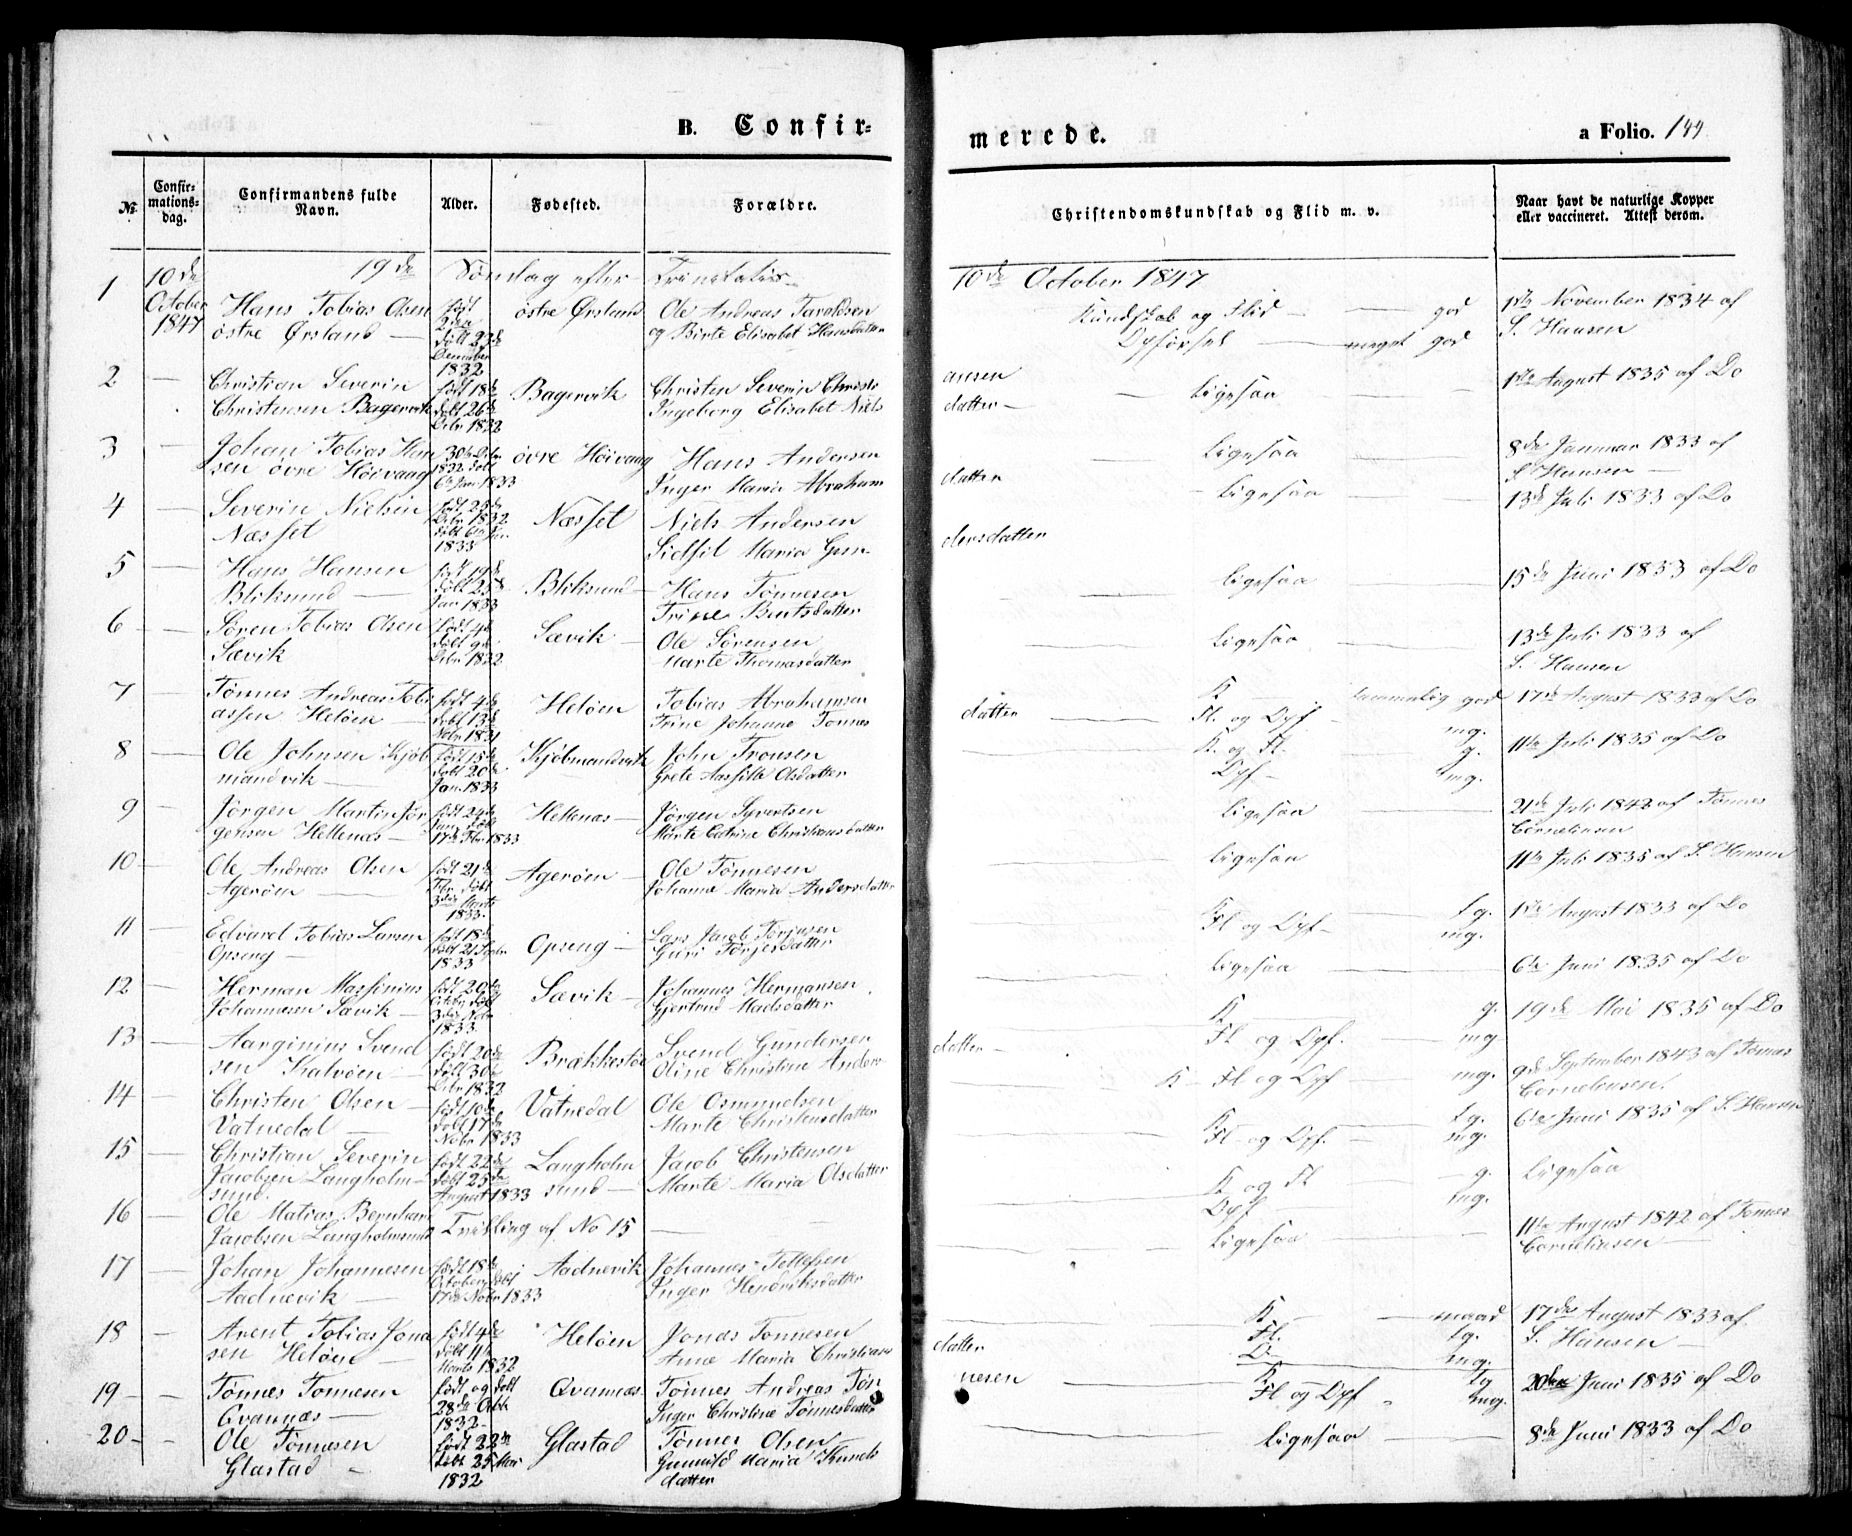 B. Confir=
merede.
a Folio. 144
№
Confir=
mations=
dag.
Confirmandens fulde
Navn.
Alder.
Fødested.
Forældre.
Christendomskundskab og Flid m. v.
Naar havt de naturlige Kopper
eller vaccineret. Attest derom.
19de Søndag efter Trinitatis
10de October 1847
1 10de October 1847 Hans Tobias Olsen
østre Ørsland
født
2den
døbt 23de
December
1832
østre Ørsland
Ole Andreas Taraldsen
og Birte Elisabet Hansdatter
Kundskab og Flid god
Opførsel meget god
1ste November 1834 af
S. Hansen
2 Christian Severin
Christensen Bagervik
født 18de
døbt 26de
Debr 1832
Bagervik
Christen Severin Christi
ansen
Ingeborg Elisabet Niels
datter
ligesaa
1ste August 1835 af Do
3 Johan Tobias Han
sen øvre Höivaag
30te Debr
1832 døbt
6te Jan 1833
øvre Höivaag
Hans Andersen
Inger Maria Abraham
datter
ligesaa
8de Januar 1833 af
S. Hansen
4 Severin Nielsen
Næsset
født 25de
Debr 1832
døbt 6te Jan
1833
Næsset
Niels Andersen
Sidsil Maria Gun
dersdatter
ligesaa
13de Juli 1833 af Do
5 Hans Hansen
Bliksund
født 19de
døbt 25de
Jan 1833
Bliksund
Hans Tönnesen
Trine Berntsdatter
ligesaa
15de Juni 1833 af Do
6 Søren Tobias Olsen
Sævik
født 4de
døbt 9de
Debr 1832
Sævik
Ole Sørensen
Marte Thomasdatter
ligesaa
13de Juli 1833 af
S. Hansen
7 Tønnes Andreas Tobi
assen Helöen
født 4de
døbt 13de
Nobr 1831
Helöen
Tobias Abrahamsen
Trine Johanne Tönnes
datter
K temmelig god
Fl. og Opf. mg.
17de August 1833 af Do
8 Ole Johnsen Kjöb
mandvik
født 15de
døbt 20de
Jan. 1833
Kjöbmandvik
John Tronsen
Grete Aasille Olsdatter
K. og Fl. g.
Opf mg.
11te Juli 1835 af Do
9 Jörgen Martin Jör
gensen Hellenæs
født 24de
Jan. døbt
17de Fbr. 1833
Hellenæs
Jörgen Syvertsen
Marte Catrine Christiansdatter
ligesaa
21de Juli 1842 af Tönnes
Corneliusen
10 Ole Andreas Olsen
Ageröen
født 21de
Fbr. døbt
3die Marts
1833
Ageröen
Ole Tönnesen
Johanne Maria Andersdatter
ligesaa
11te Juli 1835 af S. Hansen
11 Edvard Tobias Larsen
Opseng
født 18de
døbt 21 Spbr
1833
Opseng
Lars Jacob Torjusen
Guri Torjesdatter
K tg.
Fl og Opf mg.
1ste August 1833 af Do
12 Herman Massinius
Johannesen Sævik
født 20de
Octobr døbt
3die Nobr
1833
Sævik
Johannes Hermansen
Gjertrud Madsdatter
ligesaa
6te Juni 1835 af Do
13 Aarginius Svend
sen Kalvöen
født 20de
døbt 30te
Debr 1832
Brækkestö
Svend Gundersen
Oline Christine Anders
datter
K g.
Fl og Opf. mg
19de Mai 1835 af Do
14 Christen Olsen
Vatnedal
født 10de
døbt 17de
Nobr 1833
Vatnedal
Ole Osmundsen
Marte Christensdatter
K Fl og Opf mg.
9de September 1843 af Tönnes
Corneliusen.
15 Christian Severin
Jacobsen Langholm
sund.
født 22de
døbt 25de
August 1833
Langholm
sund
Jacob Christensen
Marte Maria Olsdatter
K tg.
Fl og Opf. mg.
6te Juni 1835 af S. Hansen
16 Ole Matias Bernhard
Jacobsen Langholmsund
Tvilling af No 15
K og Fl g.
Opf mg.
ligesaa
17 Johan Johannesen
Aadnevik
født 18de
October døbt
17de Nobr 1833
Aadnevik
Johannes Tellefsen
Inger Hendriksdatter
ligesaa
11te August 1842 af Tönnes
Corneliusen
18 Arent Tobias Jona
sen Helöen
født 4de
døbt 11te
Marts 1832
Helöen
Jonas Tönnesen
Anne Maria Christians
datter
K maad
Fl. tg.
O mg.
17de August 1833 af
S. Hansen
19 Tønnes Tönnesen
Qvannæs
født og døbt
28de Octbr
1832
Qvannæs
Tönnes Andreas Tön
nesen
Inger Christine Tönnesdatter
K tg
Fl og Opf mg.
20de Juni 1835 af Do
20 Ole Tönnesen
Glastad
født 22de
døbt 25 Mai
1832
Glastad
Tönnes Olsen
Gunnild Maria Knuds
datter
ligesaa
8de Juni 1833 af Do